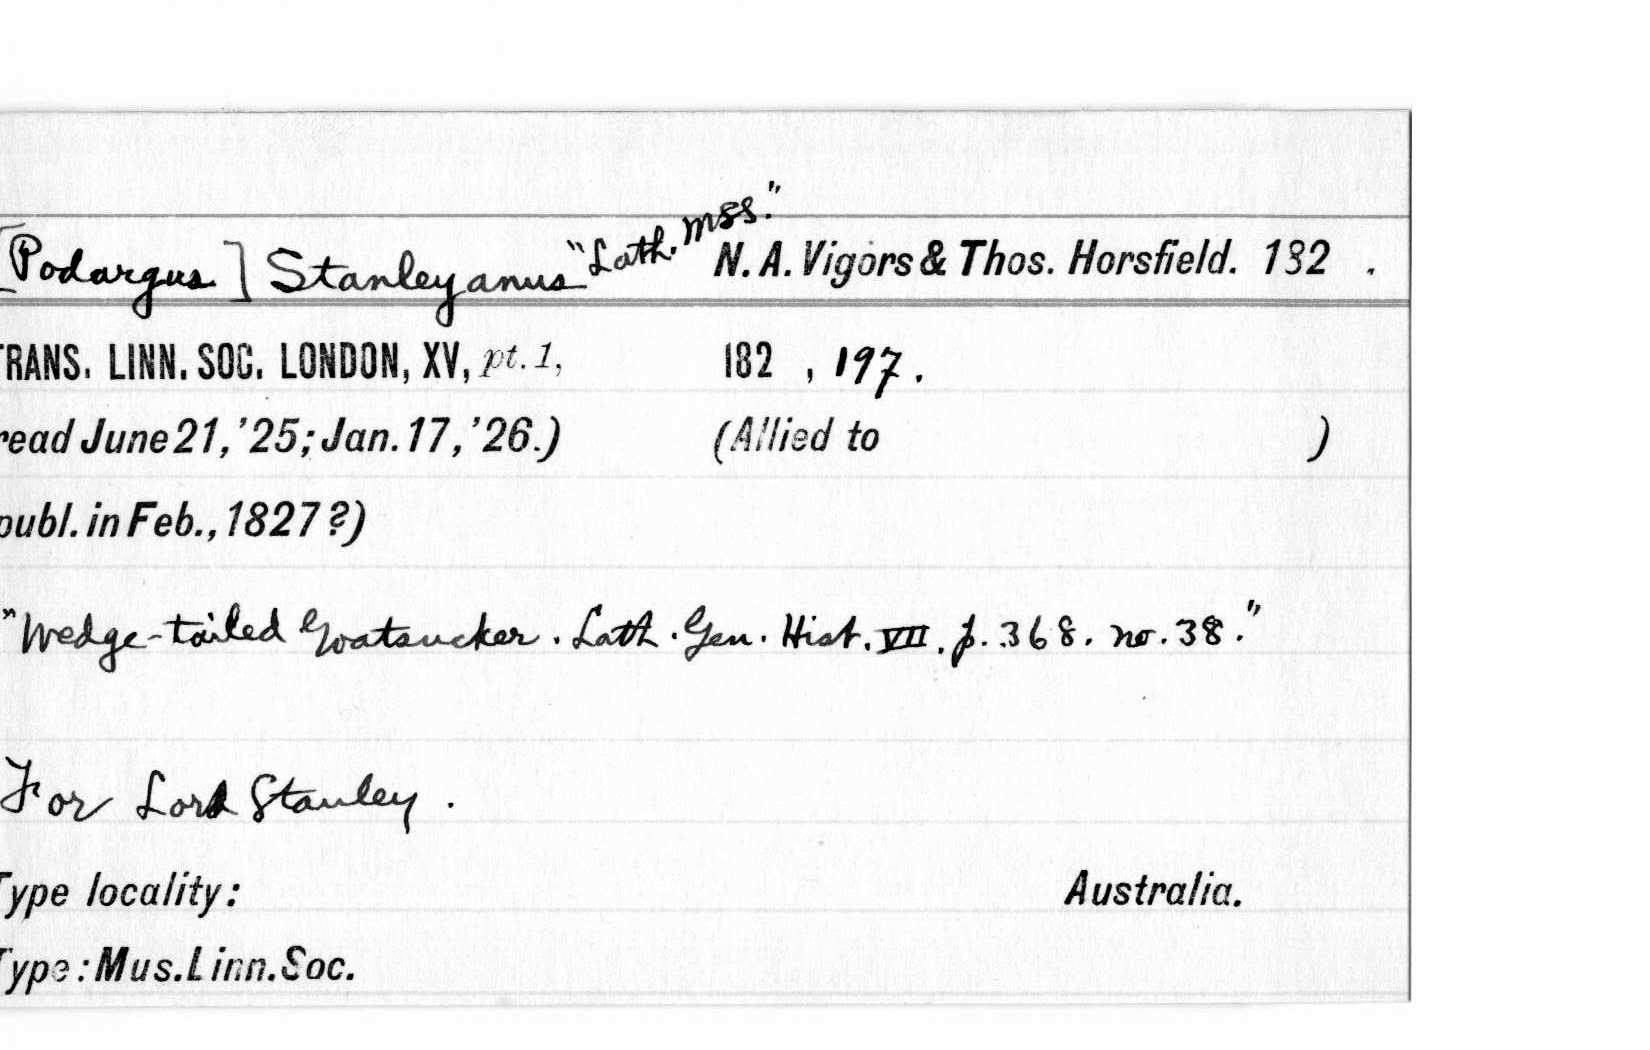 [Podargus] Stanleyanus "Lath. mss." N. A. Vigors & Thos. Horsfield. 182 .
TRANS. LINN. SOC. LONDON, XV, pt. 1, 182 , 197.
read June 21, '25; Jan. 17, '26.) (Allied to )
publ. in Feb., 1827 ?)
"Wedge-tailed Goatsucker. Lath. Gen. Hist. VII. p. 368. no. 38."
For Lord Stanley.
Type locality: Australia.
Type: Mus. Linn. Soc.